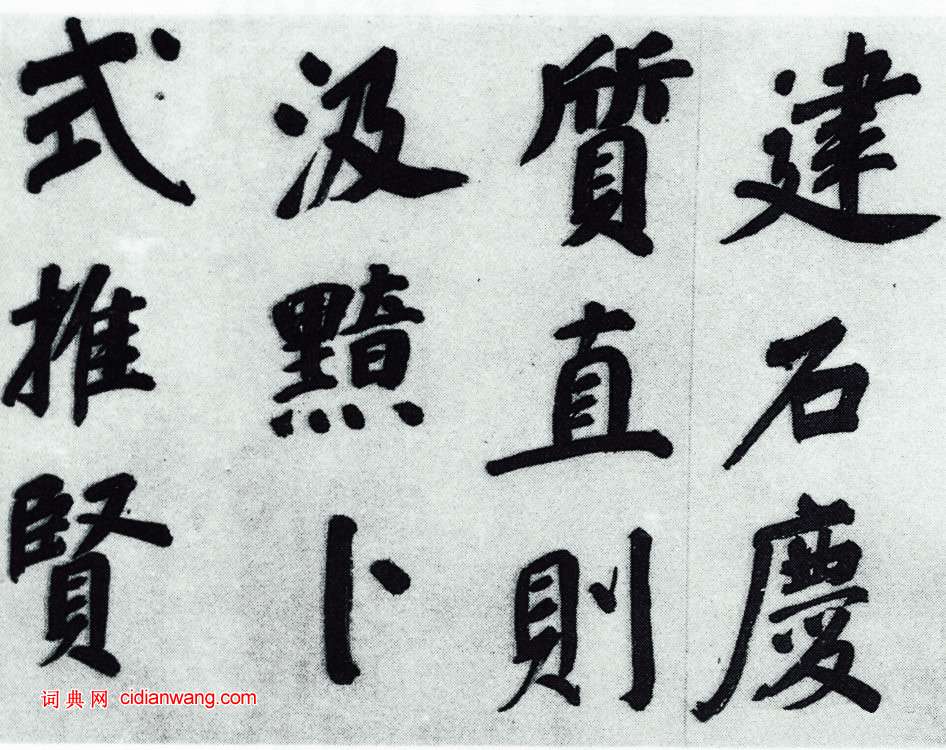 建石慶
質直則
汲黯卜
式推賢
词典网 cidianwang.com